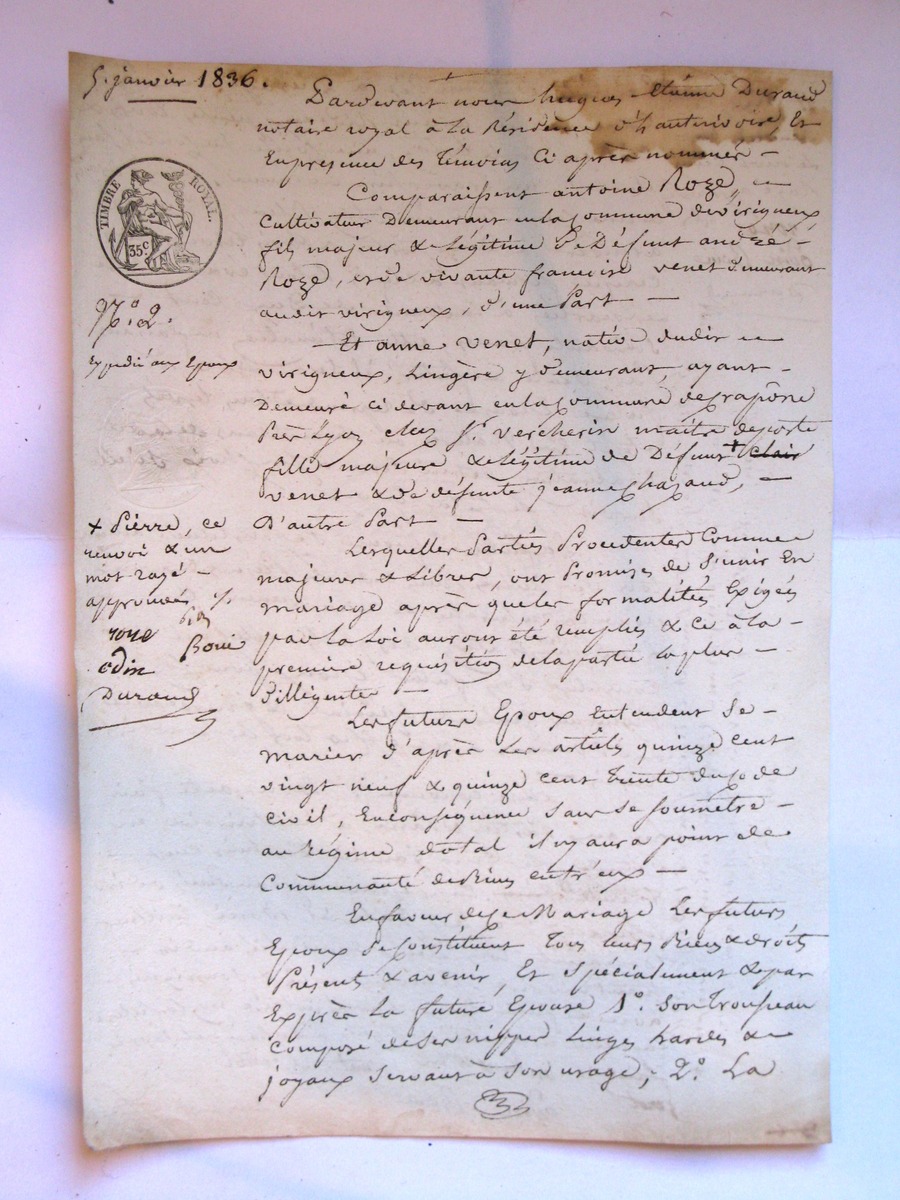 5. janvier 1836.
Pardevant nous hugues Etienne Durand
notaire royal à la Résidence d'hauterivoire, Et
En presence des Témoins Ci après nommés —
Comparaissent antoine Roze, —
Cultivateur Demeurant en la Commune de virigneux
fils majeur & Légitime De Défunt andré
Roze, et de vivante francoise venet demeurant
audit virigneux, d'une Part —
Et anne venet, native dudit —
virigneux, Lingère y demeurant, ayant —
Demeuré ci devant en la Commune de
Près Lyon chez Sr. vercherin maitre de poste
fille majeure & Légitime de Défunt + clair
venet & de défunte jeanne chazaud, —
D'autre Part —
Lesquelles Parties Procedentes Comme
majeures & Libres, ont Promises de S'unir En
mariage après que les formalités Exigées
par la Loi auront été remplies & ce à la
premiere requisition de la partie la plus —
dilligente —
Les future Epoux Entendent Se —
marier d'après Les articles quinze cent
vingt neuf & quinze cent Trente du Code
civil, En conséquence Sans Se Soumetre —
au Régime dotal il n'y aura point de
Communauté de Biens entr'eux —
En faveur de ce Mariage Les futurs
Epoux Se Constituent Tous leurs Biens & droits
Présent & avenir, Et Spécialement & par
Exprès La future Epouse 1°. Son Trousseau
Composé de Ses nippes Linges hardes &
joyaux Servant à Son usage; 2°. La
TIMBRE ROYAL.
35c
N°. 2.
Expédié aux Epoux
+ Pierre, ce
renvoi & un
mot rayé —
approuvés
roze
Boui
Durand